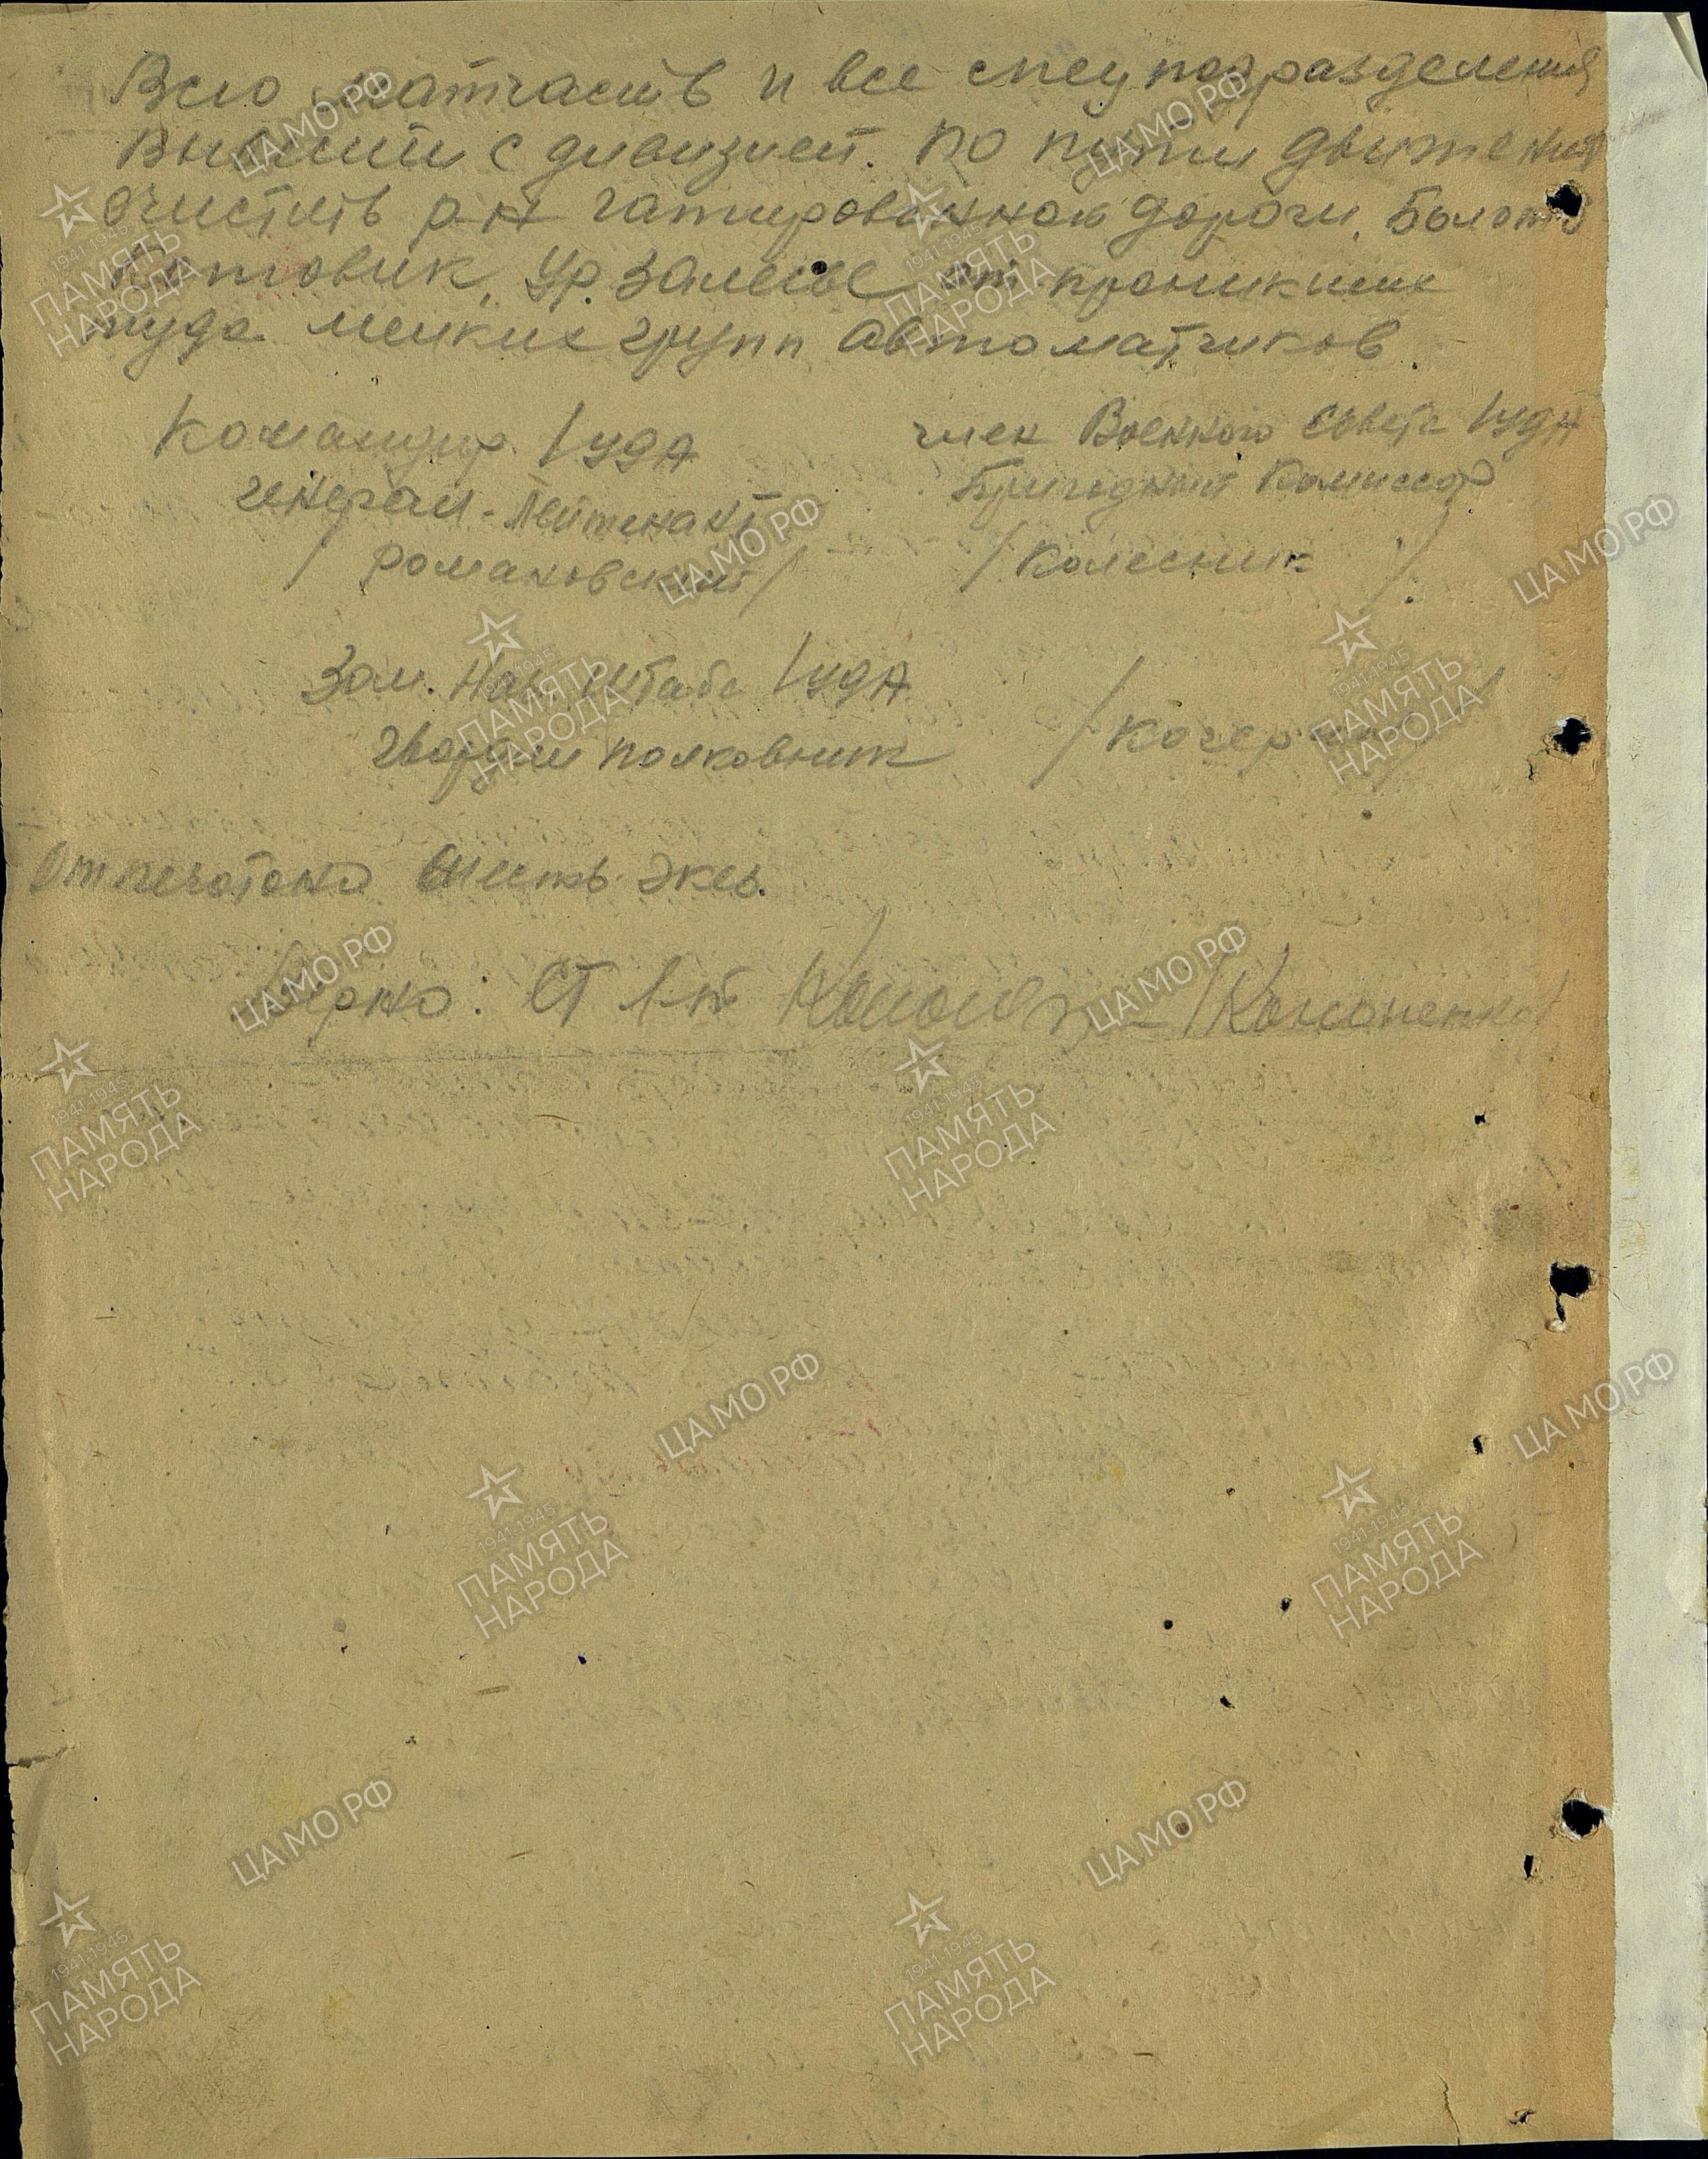 Всю матчасть и все спецподразделения
вывести с дивизией. По пути движения
очистить р-н гатированной дороги, Болото
Ур. Залесье от проникших
туда мелких групп автоматчиков.
Командир 1 УДА член Военного Совета 1 УДА
генерал-лейтенант Бригадный Комиссар
/Романовский/ /Колесник/
Зам. Нач. Штаба 1 УДА
гвардии полковник
Отпечатано шесть экз.
Верно: СТ Л-нт /Кононенко/
ЦАМО РФ
1941-1945
ПАМЯТЬ
НАРОДА